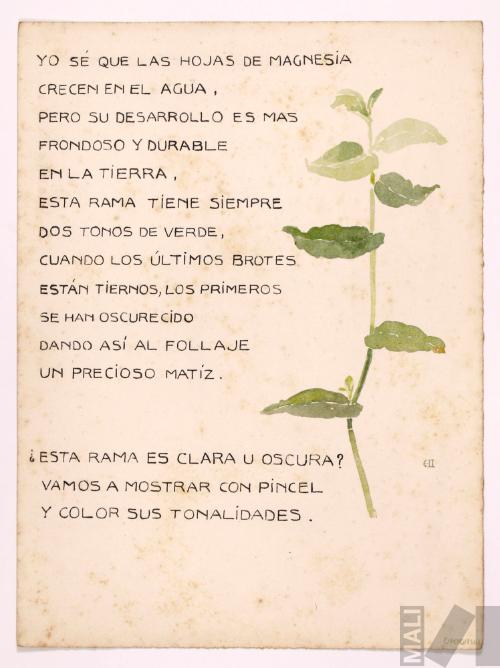 YO SÉ QUE LAS HOJAS DE MAGNESÍA
CRECEN EN EL AGUA,
PERO SU DESARROLLO ES MAS
FRONDOSO Y DURABLE
EN LA TIERRA,
ESTA RAMA TIENE SIEMPRE
DOS TONOS DE VERDE,
CUANDO LOS ÚLTIMOS BROTES
ESTÁN TIERNOS, LOS PRIMEROS
SE HAN OSCURECIDO
DANDO ASÍ AL FOLLAJE
UN PRECIOSO MATÍZ.
¿ESTA RAMA ES CLARA U OSCURA?
VAMOS A MOSTRAR CON PINCEL
Y COLOR SUS TONALIDADES.
MALI